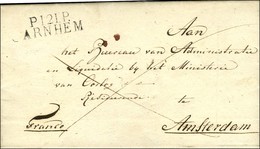 P.121.P.
ARNHEM
Aan
het Bureau van Administratie
en Liquidatie bij het Ministerie
van Oorlog
te
Franco Amsterdam